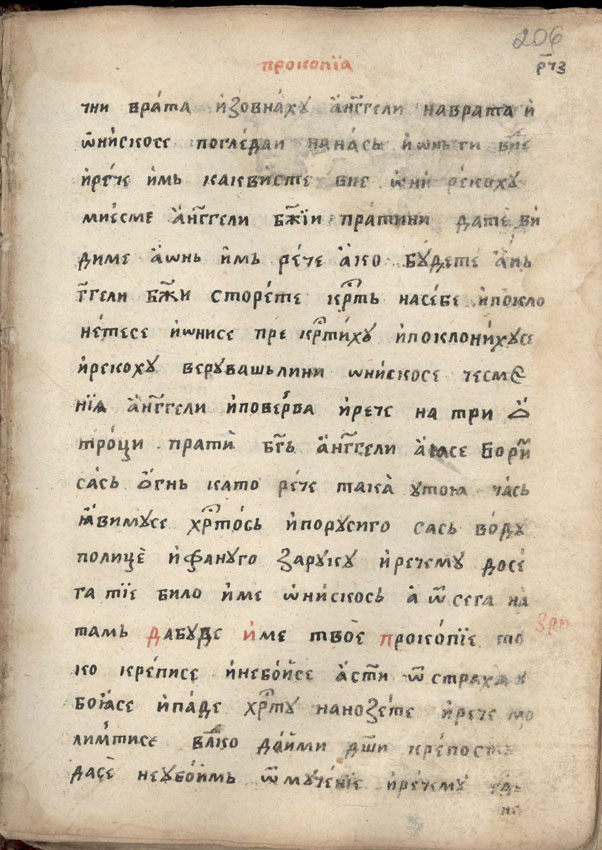 206
прокопїа
р҃чз
тни врата и҆зовнаху а҆н҃гели навратa и҆
ѡ҆нискосе погледаи нанась и҆ѡнь ги вїе
и҆рече имь каквисте вие ѡ҆ни рекоху
миесме а҆н҃гели бж҃їи пратини дате ви
диме а҆ѡнь и҆мь рече а҆ко будете а҆нь
г҃гели бж҃и сторете кр҃ть насебе и҆покло
нетесе и҆ѡнисе пре кр҃тиху и҆поклонихусе
и҆рекоху верувашьлини ѡ҆нискосе чесмѐ
нїѧ а҆н҃гели и҆поверва и҆рече на три ѻ҆
троци прати бг҃ь а҆н҃гели
сась ѻ҆гнь като рече така утоѧ чась
ꙗ҆вимусе хр҃тось и҆порусиго сась воду
полице и҆фануго заруку и҆речему досе
га тїе било и҆ме ѡ҆нискось а҆ ѿ сега на
тамь дабуде и҆ме твое прокопїе
зри
ко крепсе и҆небоисе а҆сти ѿ страха
боꙗсе и҆паде хр҃ту нанозете и҆рече мо
лимтисе вл҃ко даими дш҃и крепость
дасе неубоимь ѿ мученїе и҆речему